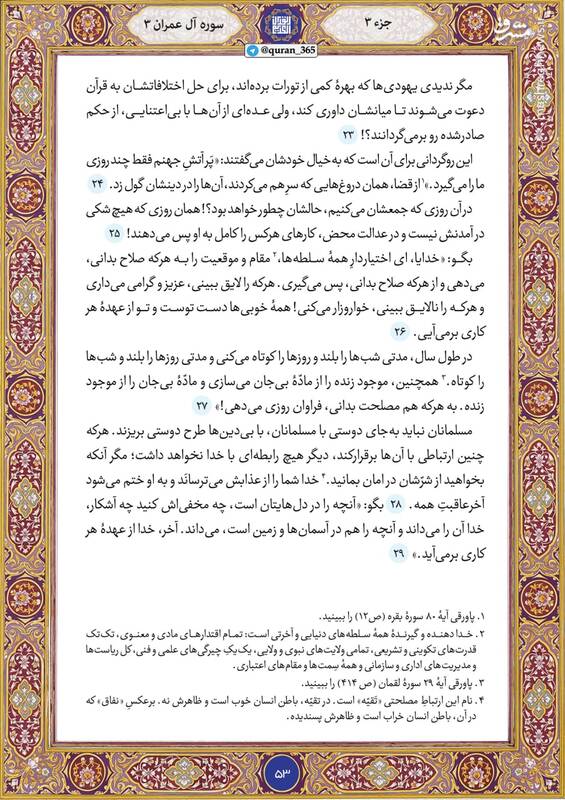 سوره آل عمران ۳
جزء ۳
@quran_365
مگر ندیدی یهودی‌ها که بهرهٔ کمی از تورات برده‌اند، برای حل اختلافاتشان به قرآن
دعوت می‌شوند تـا میانشان داوری کند، ولی عده‌ای از آن‌ها با بی‌اعتنایـی، از حکم
صادرشده رو برمی‌گردانند؟! ۲۳
این روگردانی برای آن است که به خیال خودشان می‌گفتند: «پَر آتشِ جهنم فقط چند روزی
ما را می‌گیرد.»۱ از قضا، همان دروغ‌هایی که سرِ هم می‌کردند، آن‌ها را در دینشان گول زد. ۲۴
در آن روزی که جمعشان می‌کنیم، حالشان چطور خواهد بود؟! همان روزی که هیچ شکی
در آمدنش نیست و در عدالت محض، کارهای هرکس را کامل به او پس می‌دهند! ۲۵
بگـو: «خدایا، ای اختیاردارِ همهٔ سلطه‌ها،۲ مقام و موقعیت را بـه هرکه صلاح بدانی،
می‌دهی و از هرکه صلاح بدانی، پس می‌گیری. هرکه را لایق ببینی، عزیز و گرامی می‌داری
و هرکـه را نالایق ببینی، خواروزار می‌کنی! همهٔ خوبی‌ها دسـت توست و تـو از عهدهٔ هر
کاری برمی‌آیی. ۲۶
در طول سال، مدتی شب‌ها را بلند و روزها را کوتاه می‌کنی و مدتی روزها را بلند و شب‌ها
را کوتاه.۳ همچنین، موجود زنده را از مادّهٔ بی‌جان می‌سازی و مادّهٔ بی‌جان را از موجود
زنده. به هرکه هم مصلحت بدانی، فراوان روزی می‌دهی!» ۲۷
مسلمانان نباید به‌جای دوستی با مسلمانان، با بی‌دین‌ها طرح دوستی بریزند. هرکه
چنین ارتباطی با آن‌ها برقرارکند، دیگر هیچ رابطه‌ای با خدا نخواهد داشت؛ مگر آنکه
بخواهید از شرّشان در امان بمانید.۴ خدا شما را از عذابش می‌ترساند و به او ختم می‌شود
آخرعاقبتِ همه. ۲۸ بگو: «آنچه را در دل‌هایتان است، چه مخفی‌اش کنید چه آشکار،
خدا آن را می‌داند و آنچه را هم در آسمان‌ها و زمین است، می‌داند. آخر، خدا از عهدهٔ هر
کاری برمی‌آید.» ۲۹
۱. پاورقی آیهٔ ۸۰ سورهٔ بقره (ص۱۲) را ببینید.
۲. خـدا دهنده و گیرندهٔ همهٔ سلطه‌های دنیایی و آخرتی است: تمـام اقتدارهای مادی و معنوی، تک‌تک
قدرت‌های تکوینی و تشریعی، تمامی ولایت‌های نبوی و ولایی، یک‌یکِ چیرگی‌های علمی و فنی، کل ریاست‌ها
و مدیریت‌های اداری و سازمانی و همهٔ سِمت‌ها و مقام‌های اعتباری.
۳. پاورقی آیهٔ ۲۹ سورهٔ لقمان (ص ۴۱۴) را ببینید.
۴. نام این ارتباطِ مصلحتی «تَقیّه» است. در تقیّه، باطن انسان خوب است و ظاهرش نه. برعکسِ «نفاق» که
در آن، باطن انسان خراب است و ظاهرش پسندیده.
۵۳